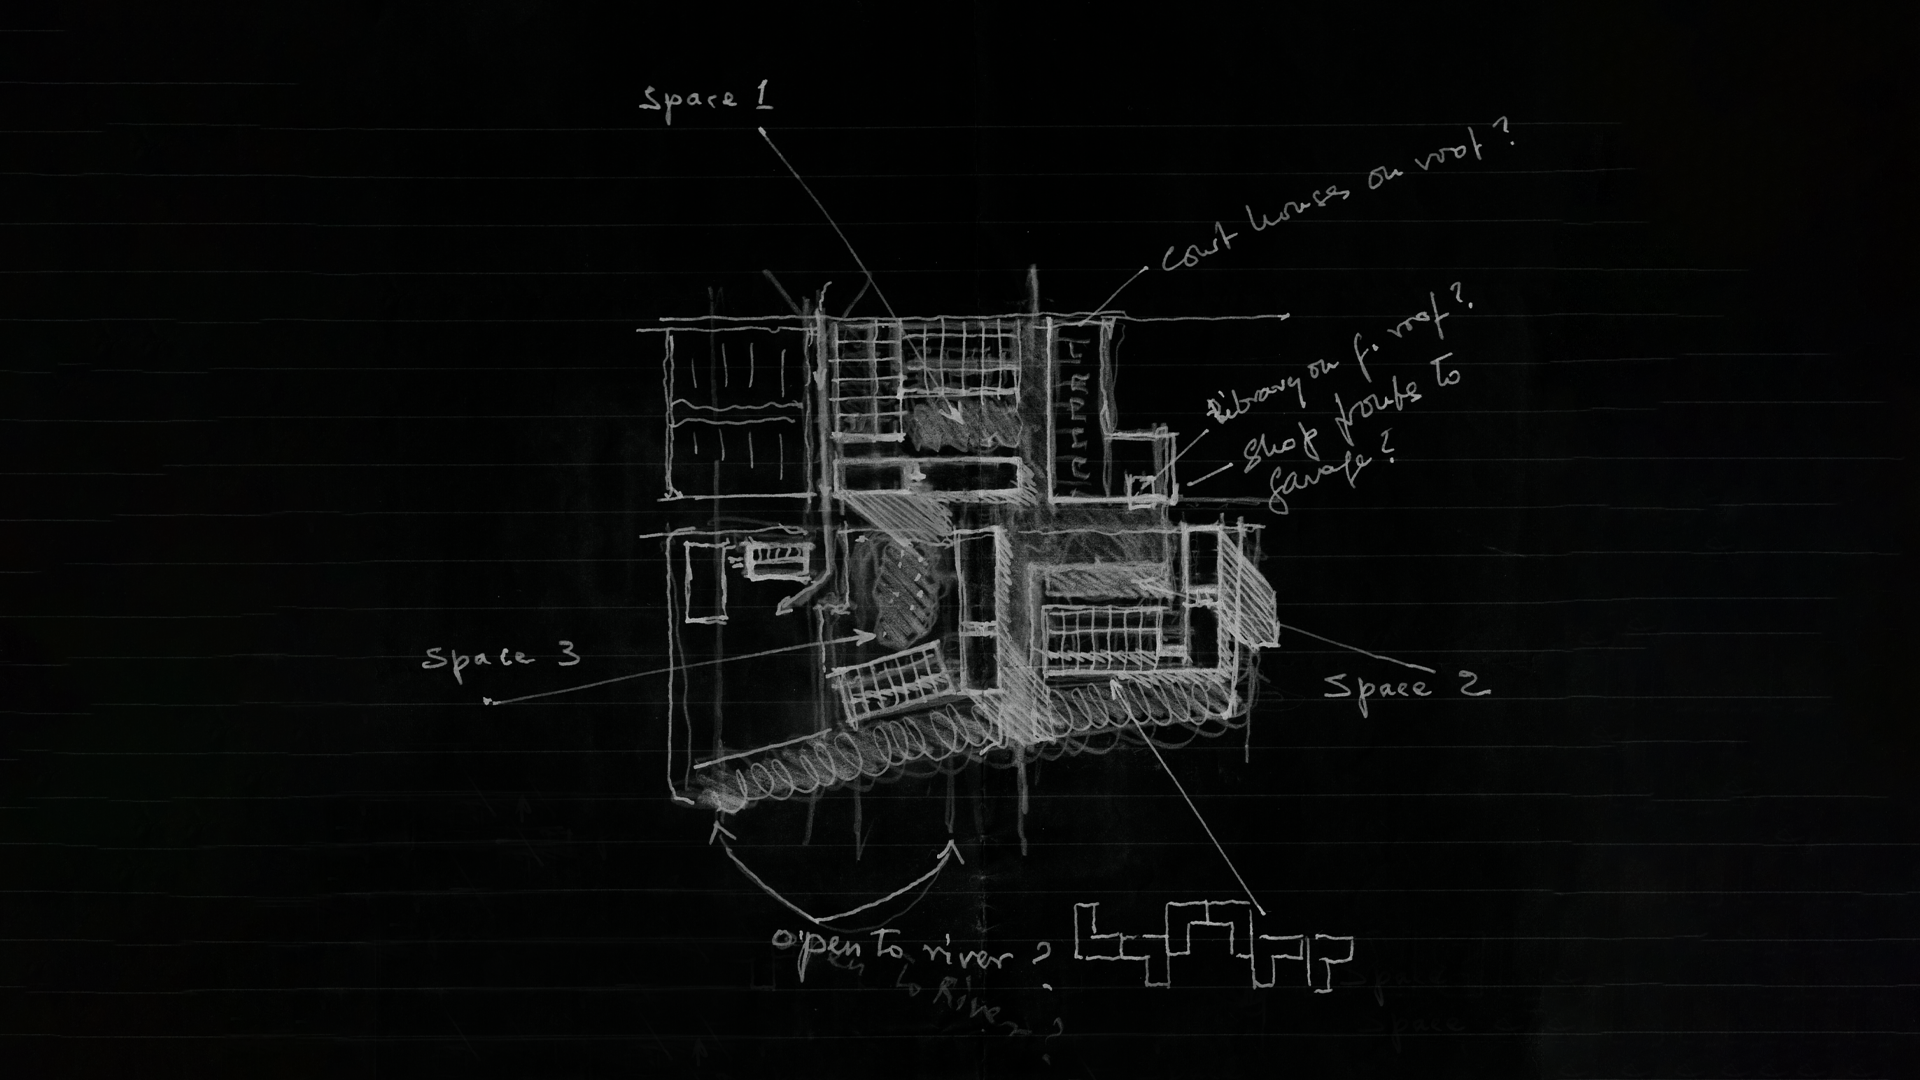 Space 1
Court houses on roof?
Library on f. roof?
Shop fronts to
garage?
Space 3
Space 2
open to river?
to River?